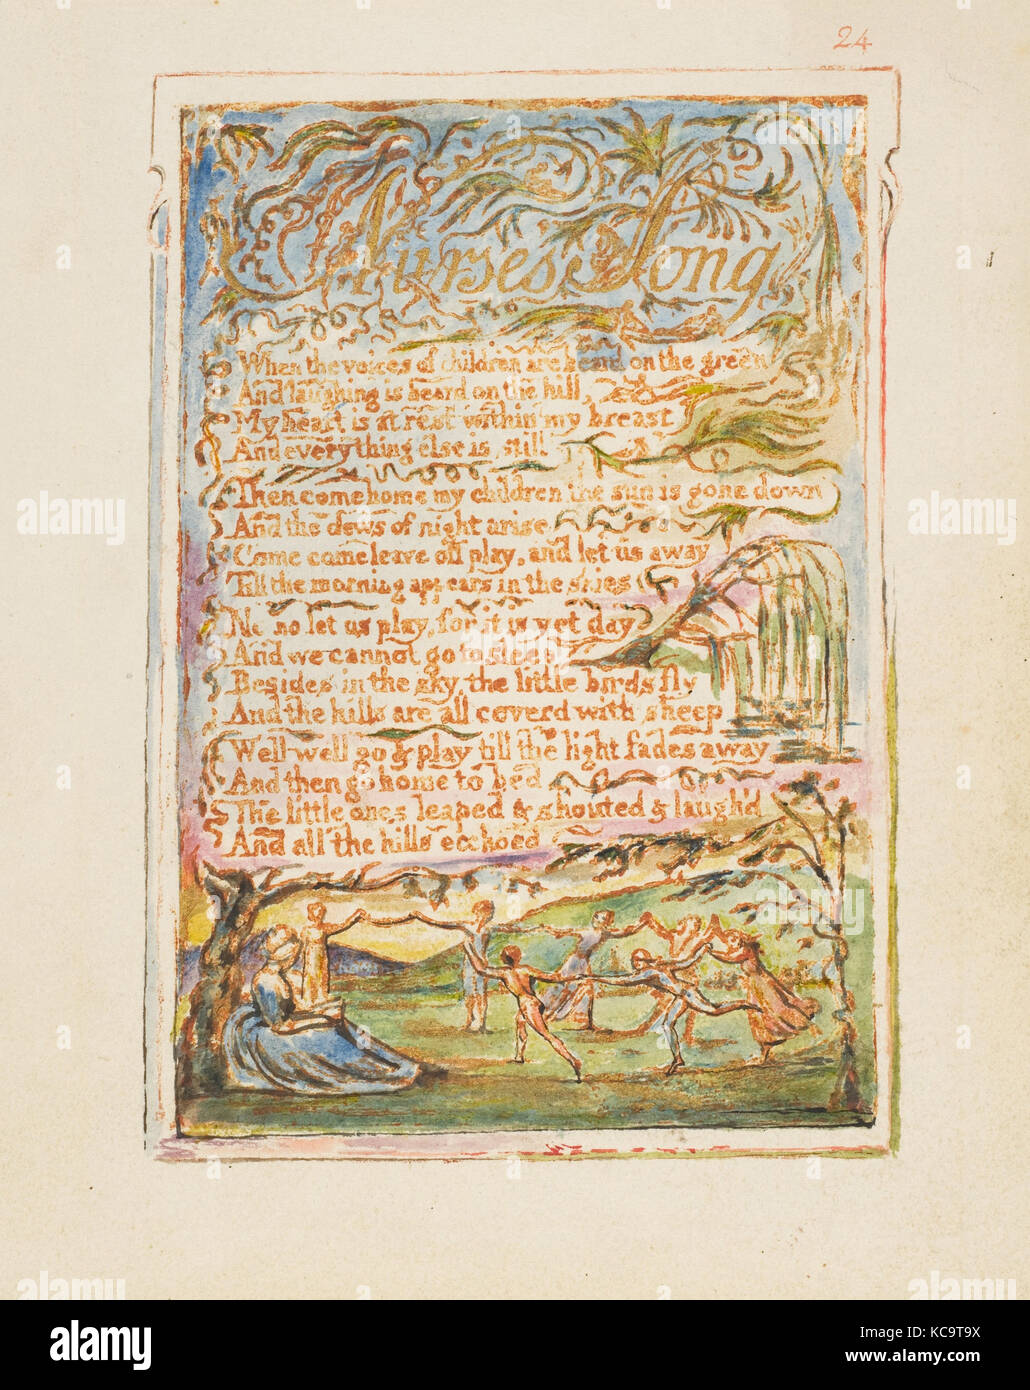 24
Nurses Song
When the voices of children are heard on the green
And laughing is heard on the hill
My heart is at rest within my breast
And everything else is still
Then come home my children the sun is gone down
And the dews of night arise
Come come leave off play, and let us away
Till the morning appears in the skies
No no let us play, for it is yet day
And we cannot go to sleep
Besides in the sky, the little birds fly
And the hills are all coverd with sheep
Well well go & play till the light fades away
And then go home to bed
The little ones leaped & shouted & laugh'd
And all the hills ecchoed
a alamy stock photo
www.alamy.com - KC9T9X